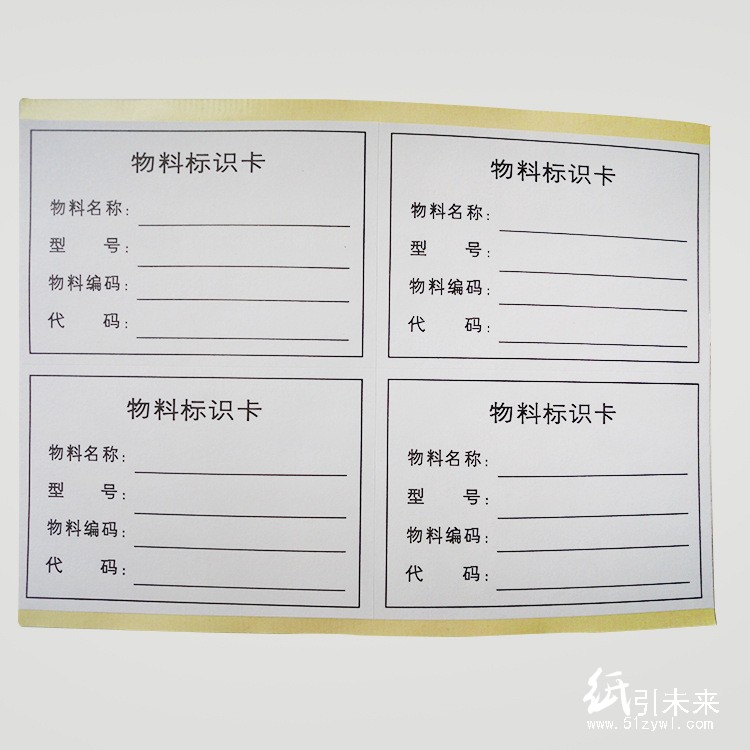 物料标识卡
物料名称:
型 号:
物料编码:
代 码:
物料标识卡
物料名称:
型 号:
物料编码:
代 码:
物料标识卡
物料名称:
型 号:
物料编码:
代 码:
物料标识卡
物料名称:
型 号:
物料编码:
代 码:
纸引未来
www.51zywl.com